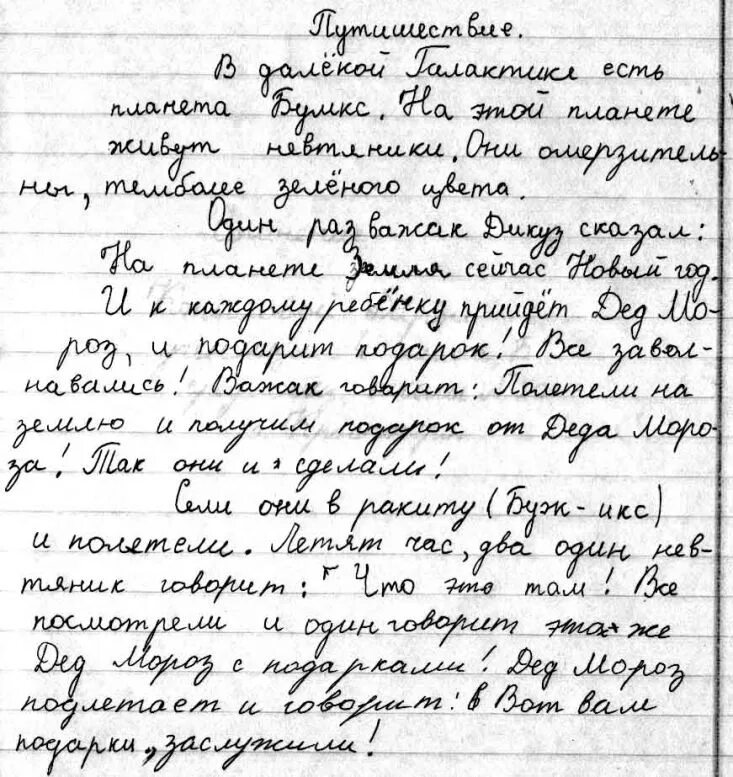 Путишествие.
В далёкой Галактике есть
планета Бумкс. На этой планете
живут невтяники. Они омерзитель-
ны, темболее зелёного цвета.
Один раз важак Дикуз сказал:
На планете Земля сейчас Новый год.
И к каждому ребёнку прийдёт Дед Мо-
роз, и подарит подарок! Все завол-
навались! Важак говарит: Полетели на
землю и получим подарок от Деда Моро-
за! Так они и сделали!
Сели они в ракиту (Буж-икс)
и полетели. Летят час, два один нев-
тяник говорит: "Что это там! Все
посмотрели и один говорит это же
Дед Мороз с подарками! Дед Мороз
подлетает и говорит: в Вот вам
подарки, заслужили!